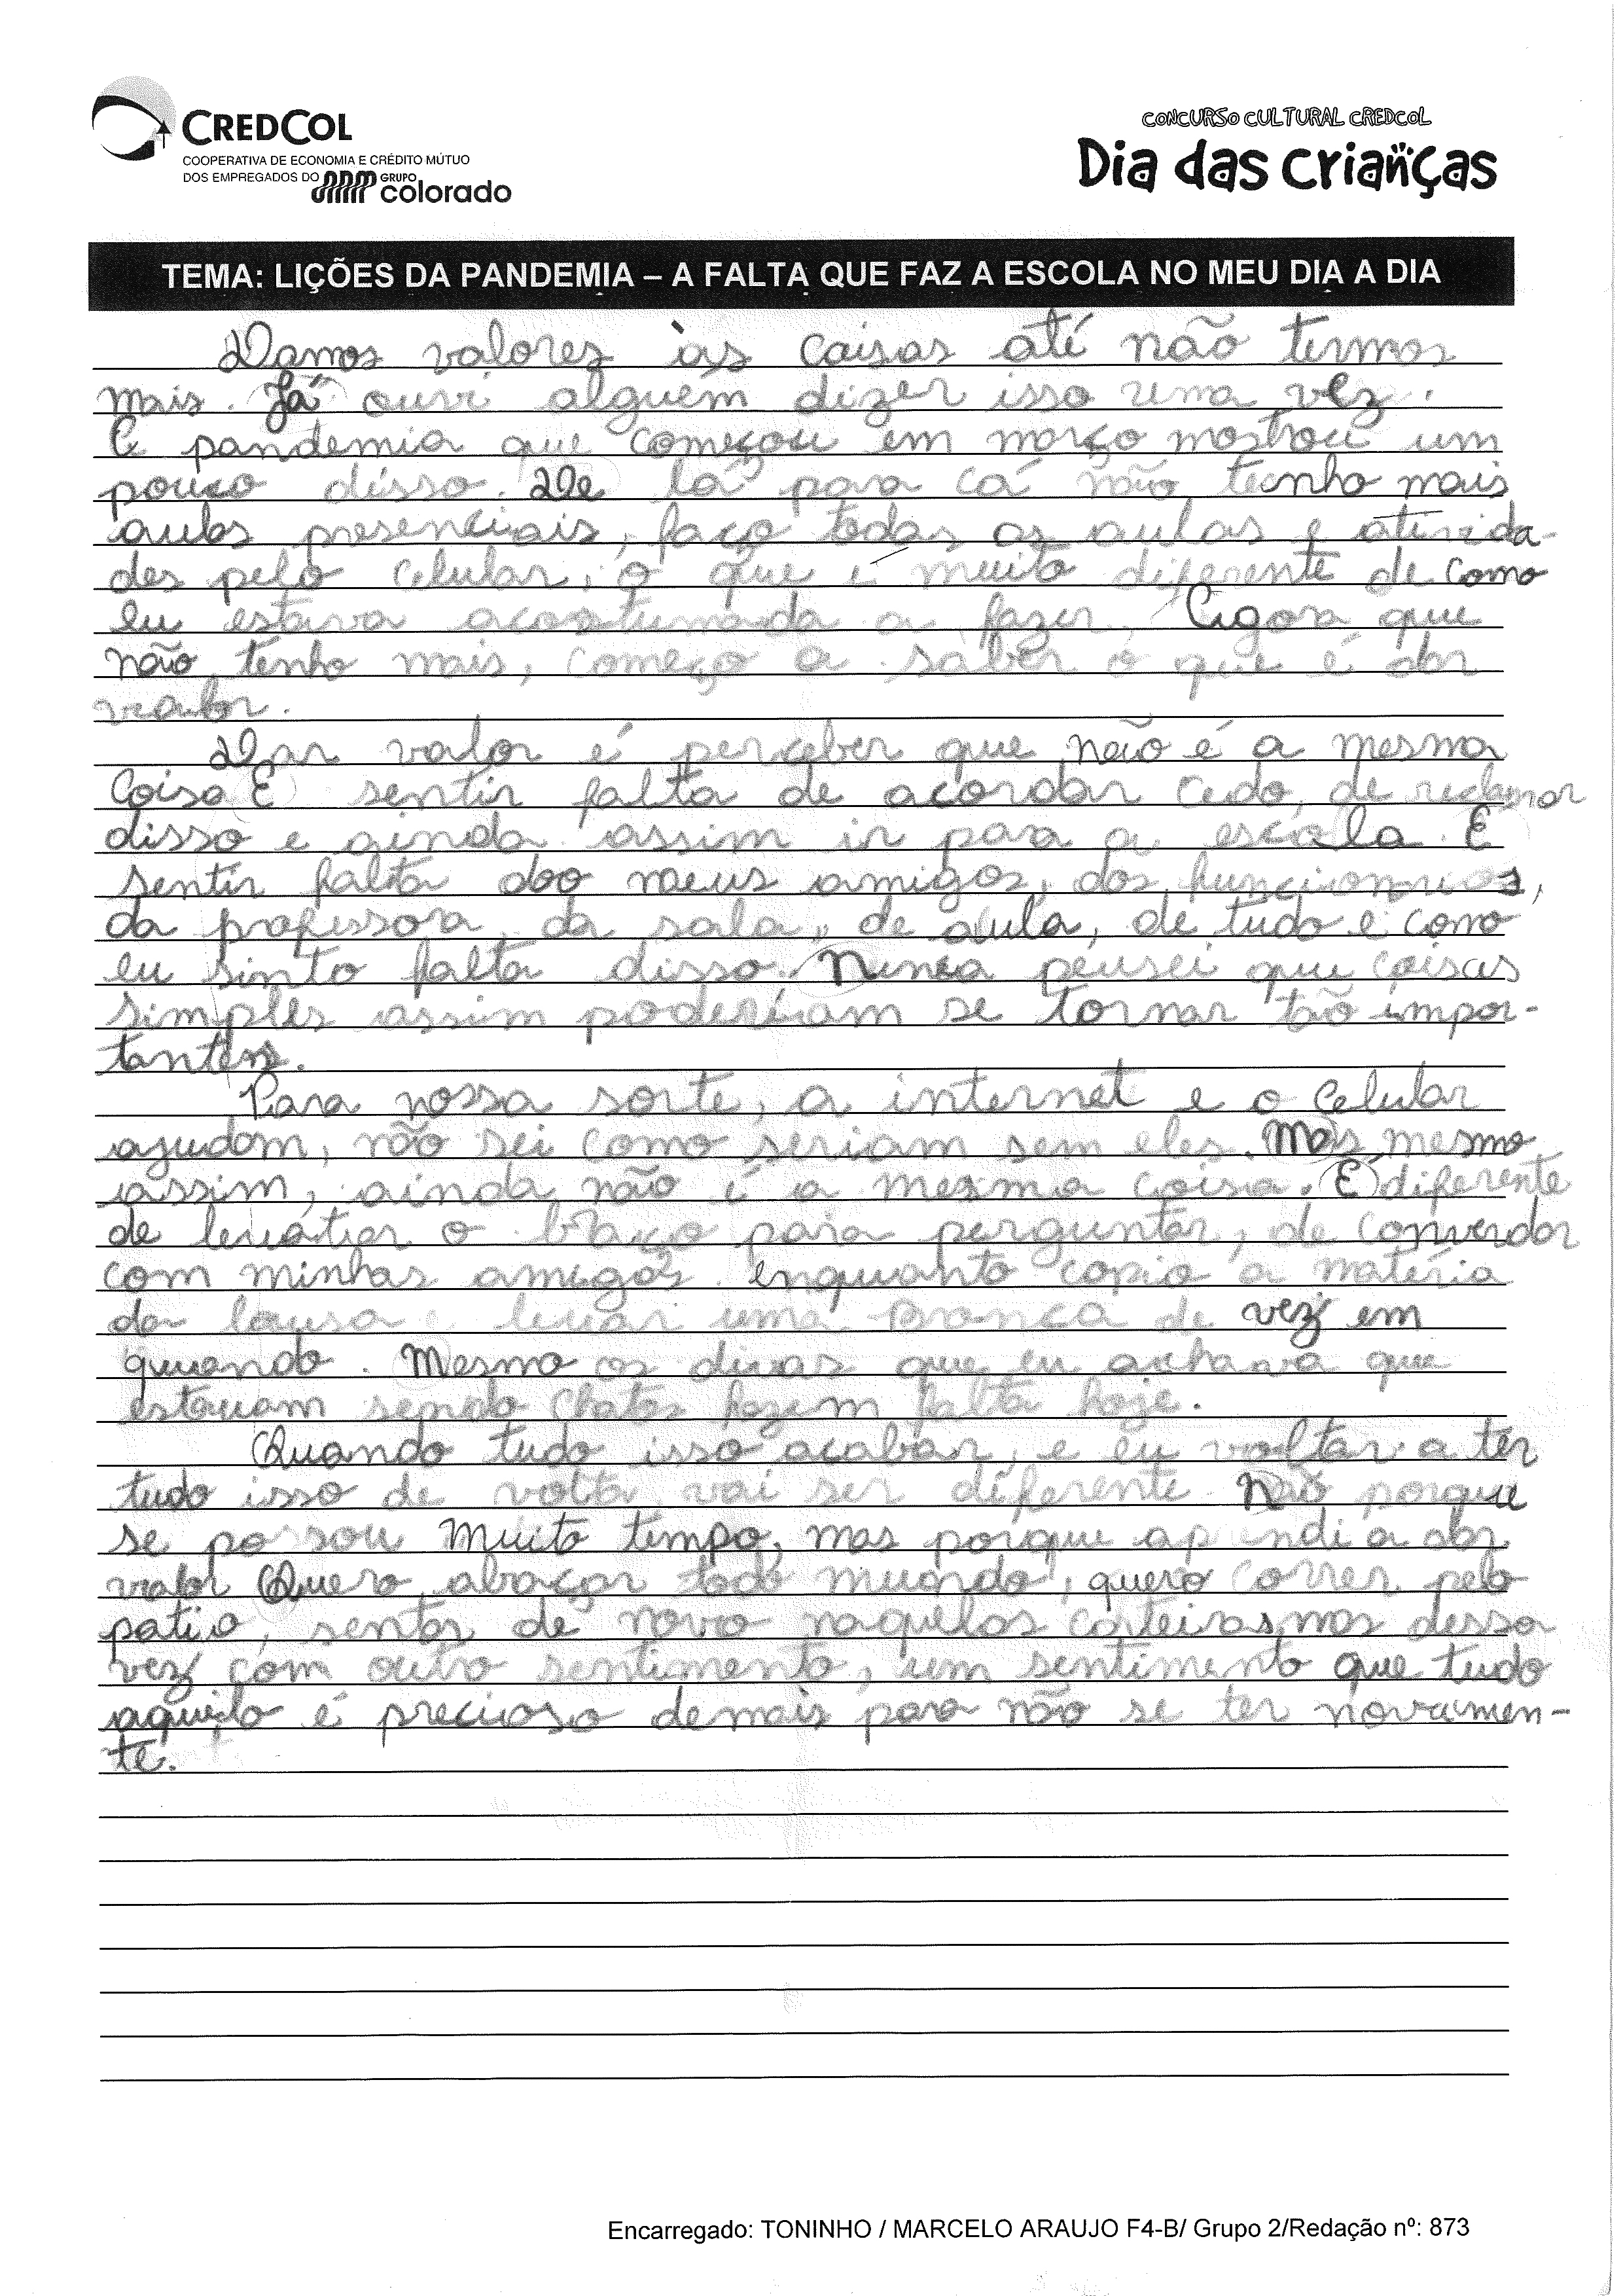 CREDCOL
COOPERATIVA DE ECONOMIA E CRÉDITO MÚTUO
DOS EMPREGADOS DO GRUPO colorado
CONCURSO CULTURAL CREDCOL
Dia das crianças
TEMA: LIÇÕES DA PANDEMIA – A FALTA QUE FAZ A ESCOLA NO MEU DIA A DIA
Damos valores às coisas até não termos
mais. Já ouvi alguém dizer isso uma vez.
E pandemia que começou em março mostrou um
pouco disso. De lá para cá não tenho mais
aulas presenciais, faço todas as aulas e ativida-
des pelo celular, o que é muito diferente de como
eu estava acostumada a fazer, Agora que
não tenho mais, começo a saber o que é dar
valor.
Dar valor é perceber que não é a mesma
coisa É sentir falta de acordar cedo, de reclamar
disso e ainda assim ir para a escola. É
sentir falta dos meus amigos, dos funcionarios,
da professora, da sala, de aula, de tudo e como
eu sinto falta disso. Nunca pensei que coisas
simples assim poderiam se tornar tão impor-
tantes.
Para nossa sorte, a internet e o celular
ajudam, não sei como seriam sem eles. Mas mesmo
assim, ainda não é a mesma coisa. É diferente
de levantar o braço para perguntar, de conversar
com minhas amigas enquanto copio a matéria
da lousa e levar uma bronca de vez em
quando. Mesmo os dias que eu achava que
estavam sendo chatos fazem falta hoje.
Quando tudo isso acabar, e eu voltar a ter
tudo isso de volta vai ser diferente. Não porque
se passou muito tempo, mas porque aprendi a dar
valor Quero abraçar todo mundo, quero correr pelo
patio, sentar de novo naquelas carteiras, mas dessa
vez com outro sentimento, um sentimento que tudo
aquilo é precioso demais para não se ter novamen-
te.
Encarregado: TONINHO / MARCELO ARAUJO F4-B/ Grupo 2/Redação nº: 873